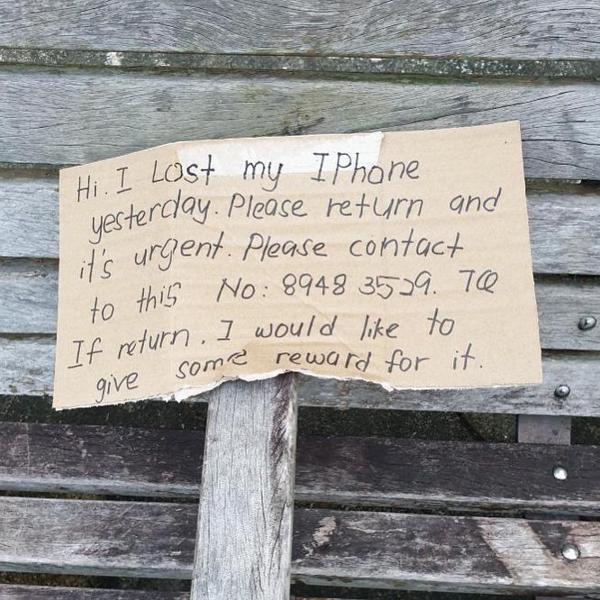 Hi. I Lost my IPhone
yesterday. Please return and
it's urgent. Please contact
to this No: 8948 3529. TQ
If return. I would like to
give some reward for it.